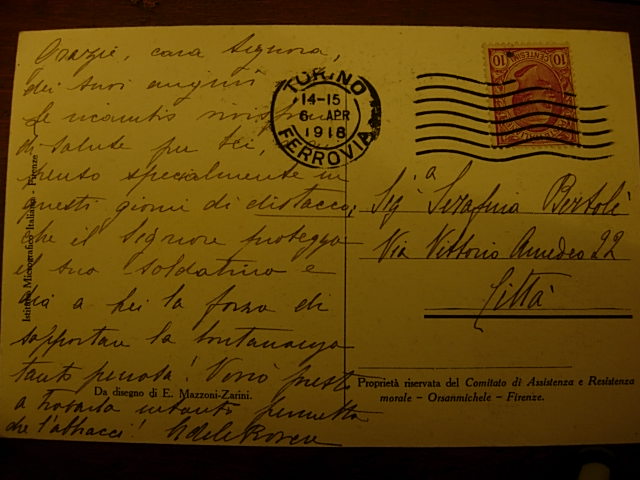 Grazie, cara Signora,
dei suoi auguri
Le ricambio
di salute per Lei,
penso specialmente in
questi giorni di distacco;
che il Signore protegga
il suo soldatino e
dia a Lei la forza di
sopportare la lontananza
tanto penosa! Verrò presto
a trovarla intanto permetta
che l'abbracci!
Istituto Micrografico Italiano - Firenze
Da disegno di E. Mazzoni-Zarini.
TORINO
14-15
6 APR
1918
FERROVIA
10 CENTESIMI 10
Sigª Serafina Bertolè
Via Vittorio Amedeo 22
Città
Proprietà riservata del Comitato di Assistenza e Resistenza
morale - Orsanmichele - Firenze.